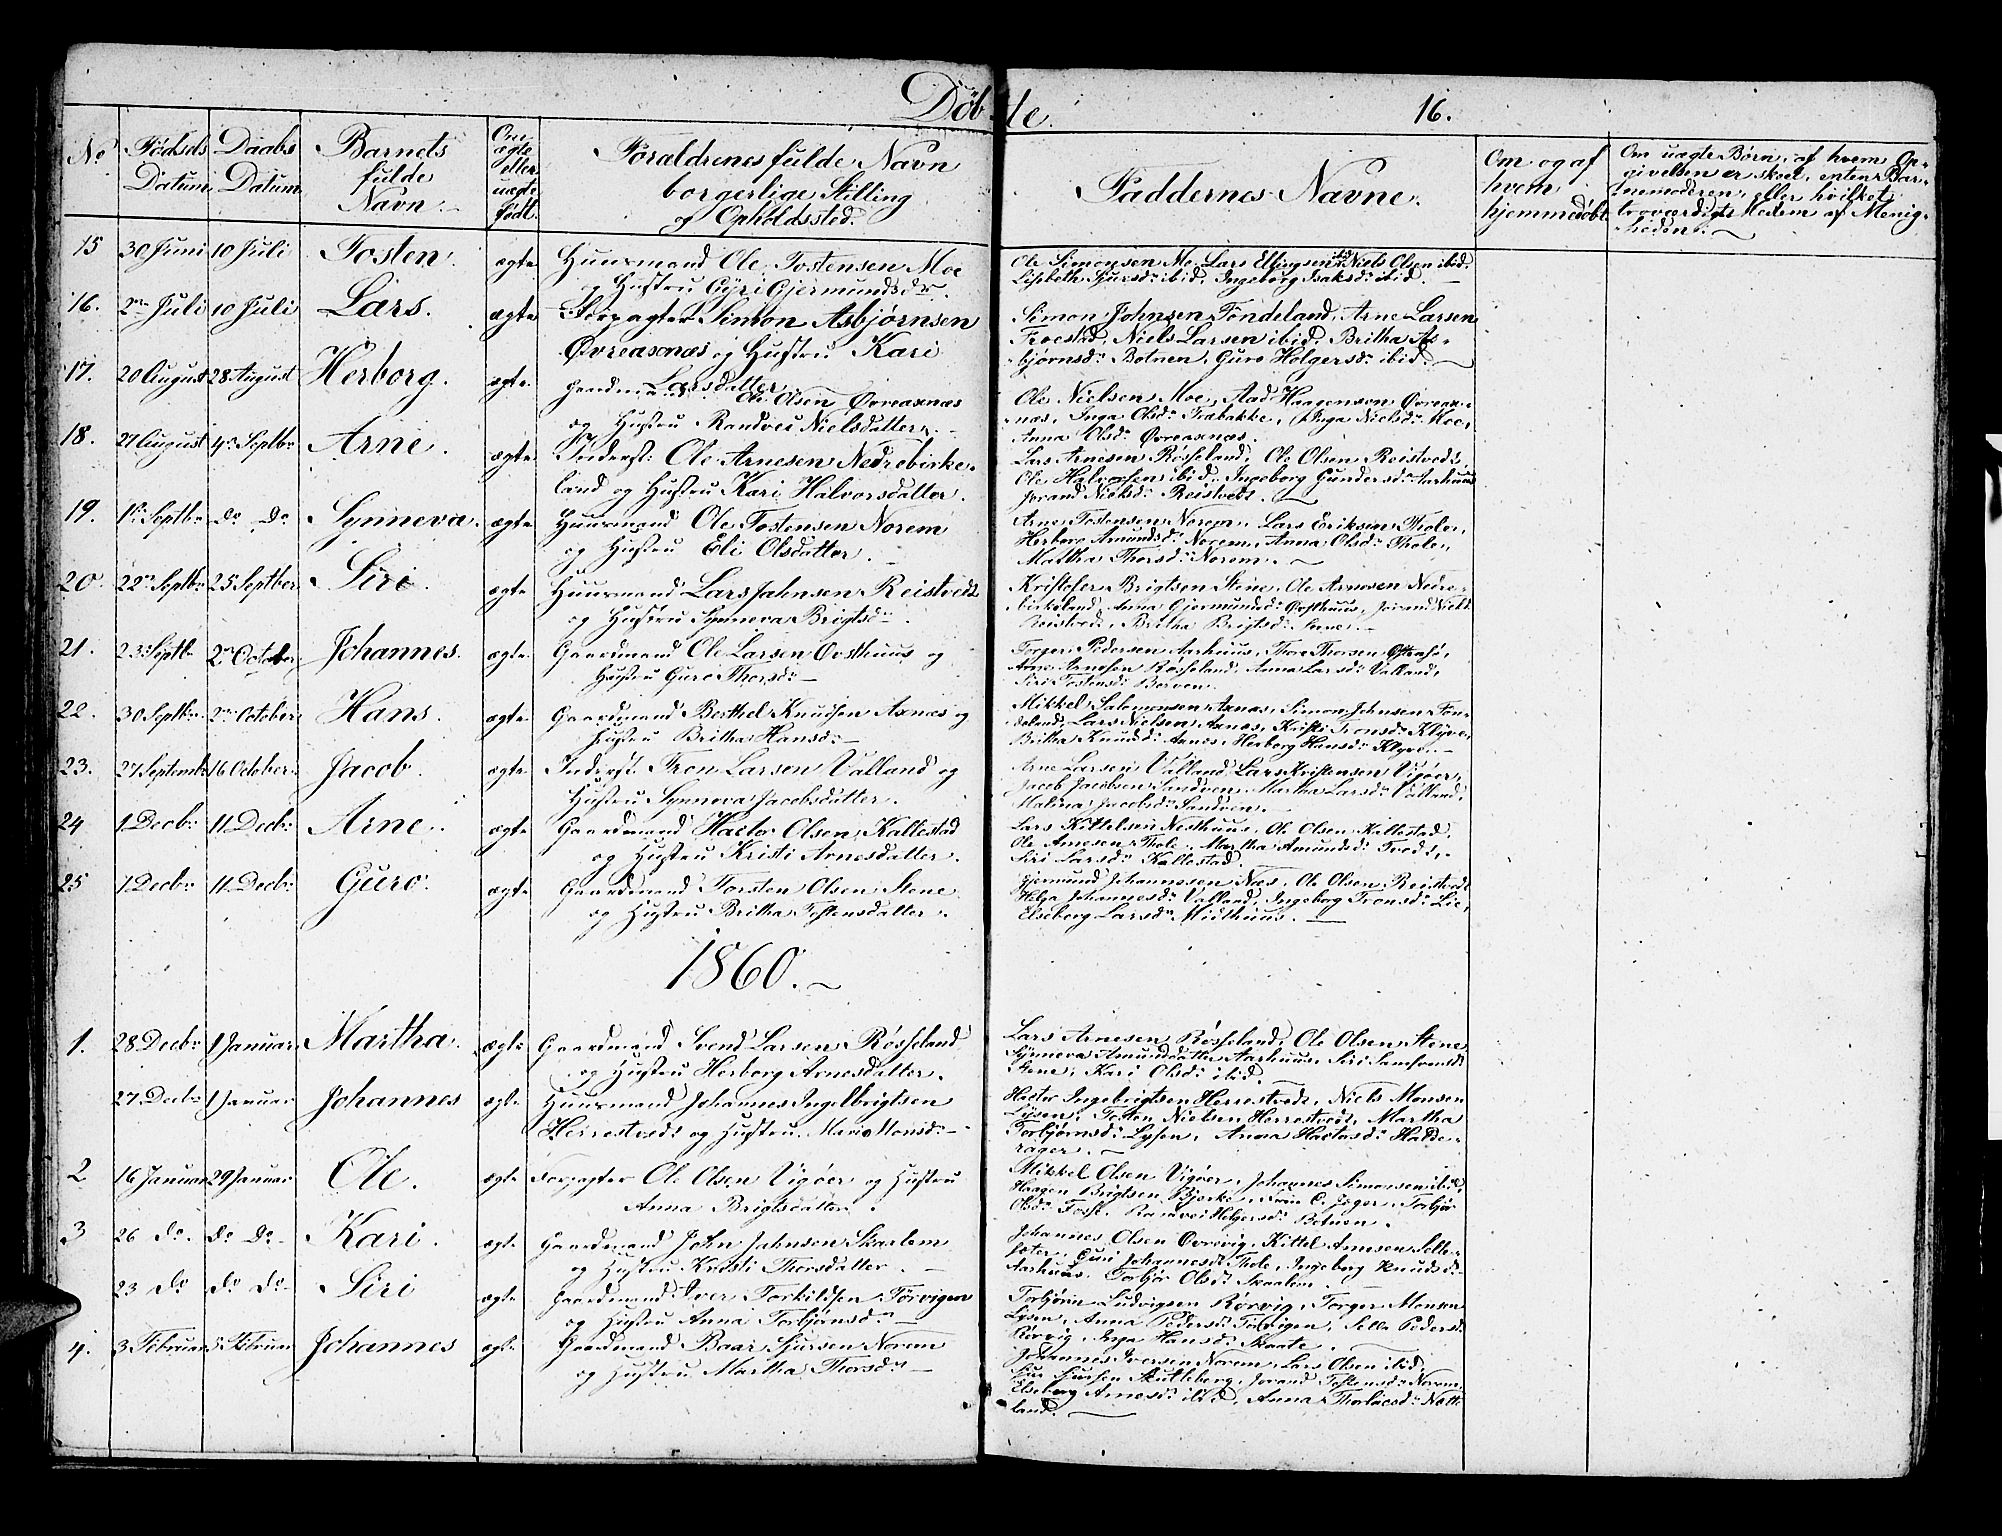 Døbte.
16.
No
Fødsels Datum
Daabs Datum
Barnets fulde Navn.
Om ægte eller uægte født.
Forældrenes fulde Navn borgerlige Stilling og Opholdssted.
Faddernes Navne.
Om og af hvem hjemmedøbt
Om uægte Børn, af hvem Opgivelsen er skeet, enten Barnemoderen, eller hvilket troværdigt Medlem af Menigheden.
15 30 Juni 10 Juli Tosten. ægte Huusmand Ole Tostensen Moe
og Hustru Gyri Gjermundsdr.
Ole Simonsen Moe, Lars Ellingsen ibid, Niels Olsen ibid.
Lisbeth Sjursdr ibid, Ingeborg Isaksdr ibid.
16. 2den Juli 10 Juli Lars. ægte Forpagter Simon Asbjørnsen
Øvreaxnæs og Hustru Kari
Larsdatter
Simon Johnsen Tøndeland, Arne Larsen
Froestad, Niels Larsen ibid, Britha As-
bjørnsdr Botnen, Guro Holgersdr ibid.
17. 20 August 28 August Herborg. ægte Gaardmand Ole Olsen Øvreaxnæs
og Hustru Randvei Nielsdatter.
Ole Nielsen Moe, Aad Haagenson Øvreax-
næs, Inga Olsdr Træbakke, Inga Nielsdr Moe,
Anna Olsdr Øvreaxnæs.
18. 27 August 4de Septbr Arne. ægte Inderst: Ole Arnesen Nedrebirke-
land og Hustru Kari Halvorsdatter.
Lars Arnesen Røsseland, Ole Olsen Reistvedt,
Ole Halvorsen ibid, Ingeborg Gundersdr Aarhuus
Jorand Nielsdr Reistvedt.
19. 1st Septbr do do Synneva. ægte Huusmand Ole Tostensen Norem
og Hustru Eli Olsdatter.
Arne Tostensen Norem, Lars Eriksen Thole,
Herborg Amundsdr Norem, Anna Olsdr Thole,
Martha Thorsdr Norem.
20. 22de Septbr 25 Septber Siri. ægte Huusmand Lars Johnsen Reistvedt
og Hustru Synneva Brigtsdr
Kristofer Brigtsen Stene, Ole Arnesen Nedre-
birkeland, Anna Gjermundsdr Østhuus, Jorand Nielsdr
Reistvedt, Britha Brigtsdr Stene.
21. 23 Septbr 2den October Johannes. ægte Gaardmand Ole Larsen Østhuus og
Hustru Guro Thorsdr
Torger Pedersen Aarhuus, Thore Thorsen
Arne Arnesen Røsseland, Anna Larsdr Valland,
Siri Tostensdr Berven.
22. 30 Septbr 2den October Hans. ægte Gaardmand Berthel Knudsen Axnæs og
Hustru Britha Hansdr
Mikkel Salomonsen Axnæs, Simon Johnsen Tøn-
deland, Lars Nielsen Axnæs, Kristi Tronsdr Klyve,
Britha Knudsdr Axnæs, Herborg Hansdr Klyve.
23. 27 Septembr 16 October Jacob. ægte Inderst Tron Larsen Valland og
Hustru Synneva Jacobsdatter.
Arne Larsen Valland, Lars Kristensen Vigøer,
Jacob Jacobsen Sandven, Martha Larsdr Valland,
Malina Jacobsdr Sandven.
24 1 Decbr 11 Decbr Arne. ægte Gaardmand Hactor Olsen Kallestad
og Hustru Kristi Arnesdatter.
Lars Kittelsen Nesthuus, Ole Olsen Kallestad,
Ole Arnesen Thole, Martha Amundsdr Tvedt,
Siri Larsdr Kallestad.
25 7 Decbr 11 Decbr Guro. ægte Gaardmand Torsten Olsen Stene
og Hustru Britha Tostensdatter.
Gjermund Johannessen Næs, Ole Olsen Reistvedt
Helga Johannesdr Valland, Ingeborg Tronsdr Lie,
Elseborg Larsdr Midthuus.
1860.
1. 28 Decbr 1 Januar Martha. ægte Gaardmand Svend Larsen Røsseland
og Hustru Herborg Arnesdatter.
Lars Arnesen Røsseland, Ole Olsen Stene
Synneva Amundsdatter Aarhuus, Siri Samsonsdr
Stene, Kari Olsdr ibid.
27 Decbr 1 Januar Johannes ægte Huusmand Johannes Ingelbrigtsen
Herrestvedt og Hustru Maria Monsdr
Hector Ingebrigtsen Herrestvedt, Niels Monsen
Lysen, Tosten Nielsen Herrestvedt, Martha
Torbjørnsdr Lysen, Anna Hactorsdr Halde-
rager.
2 16 Januar 29 Januar Ole. ægte Forpagter Ole Olsen Vigøer og Hustru
Anna Brigtsdatter.
Mikkel Olsen Vigøer, Johannes Simonsen ibid,
Haagen Brigtsen Bjerke, Torbjør
Olsdr Fosse, Ranvei Helgersdr Botnen.
3 26 do. do do Kari. ægte Gaardmand John Johnsen Skarlem
og Hustru Kristi Thorsdatter.
Johannes Olsen Øvrevig, Kittel Arnesen Selle-
sæter, Guri Johannesdr Thole, Ingeborg Knudsdr
Aarhuus, Torbjør Olsdr Skaalem.
23 do do do Siri ægte Gaardmand Iver Torkildsen Tørvigen
og Hustru Anna Torbjørnsdr
Torbjørn Ludvigsen Rørvig, Torger Monsen
Lysen, Anna Pedersdr Tørvigen, Selle Pedersdr
Rørvig, Inga Hansdr Skaate.
4. 3 Februar 5 Februar Johannes ægte Gaardmand Baar Sjursen Norem
og Hustru Martha Thorsdr
Johannes Iversen Norem, Lars Olsen ibid,
Siur Siursen Skutleberg, Jorand Tostensdr Norem,
Elseborg Arnesdr ibid, Anna Thorlaisdr Nætte-
land.